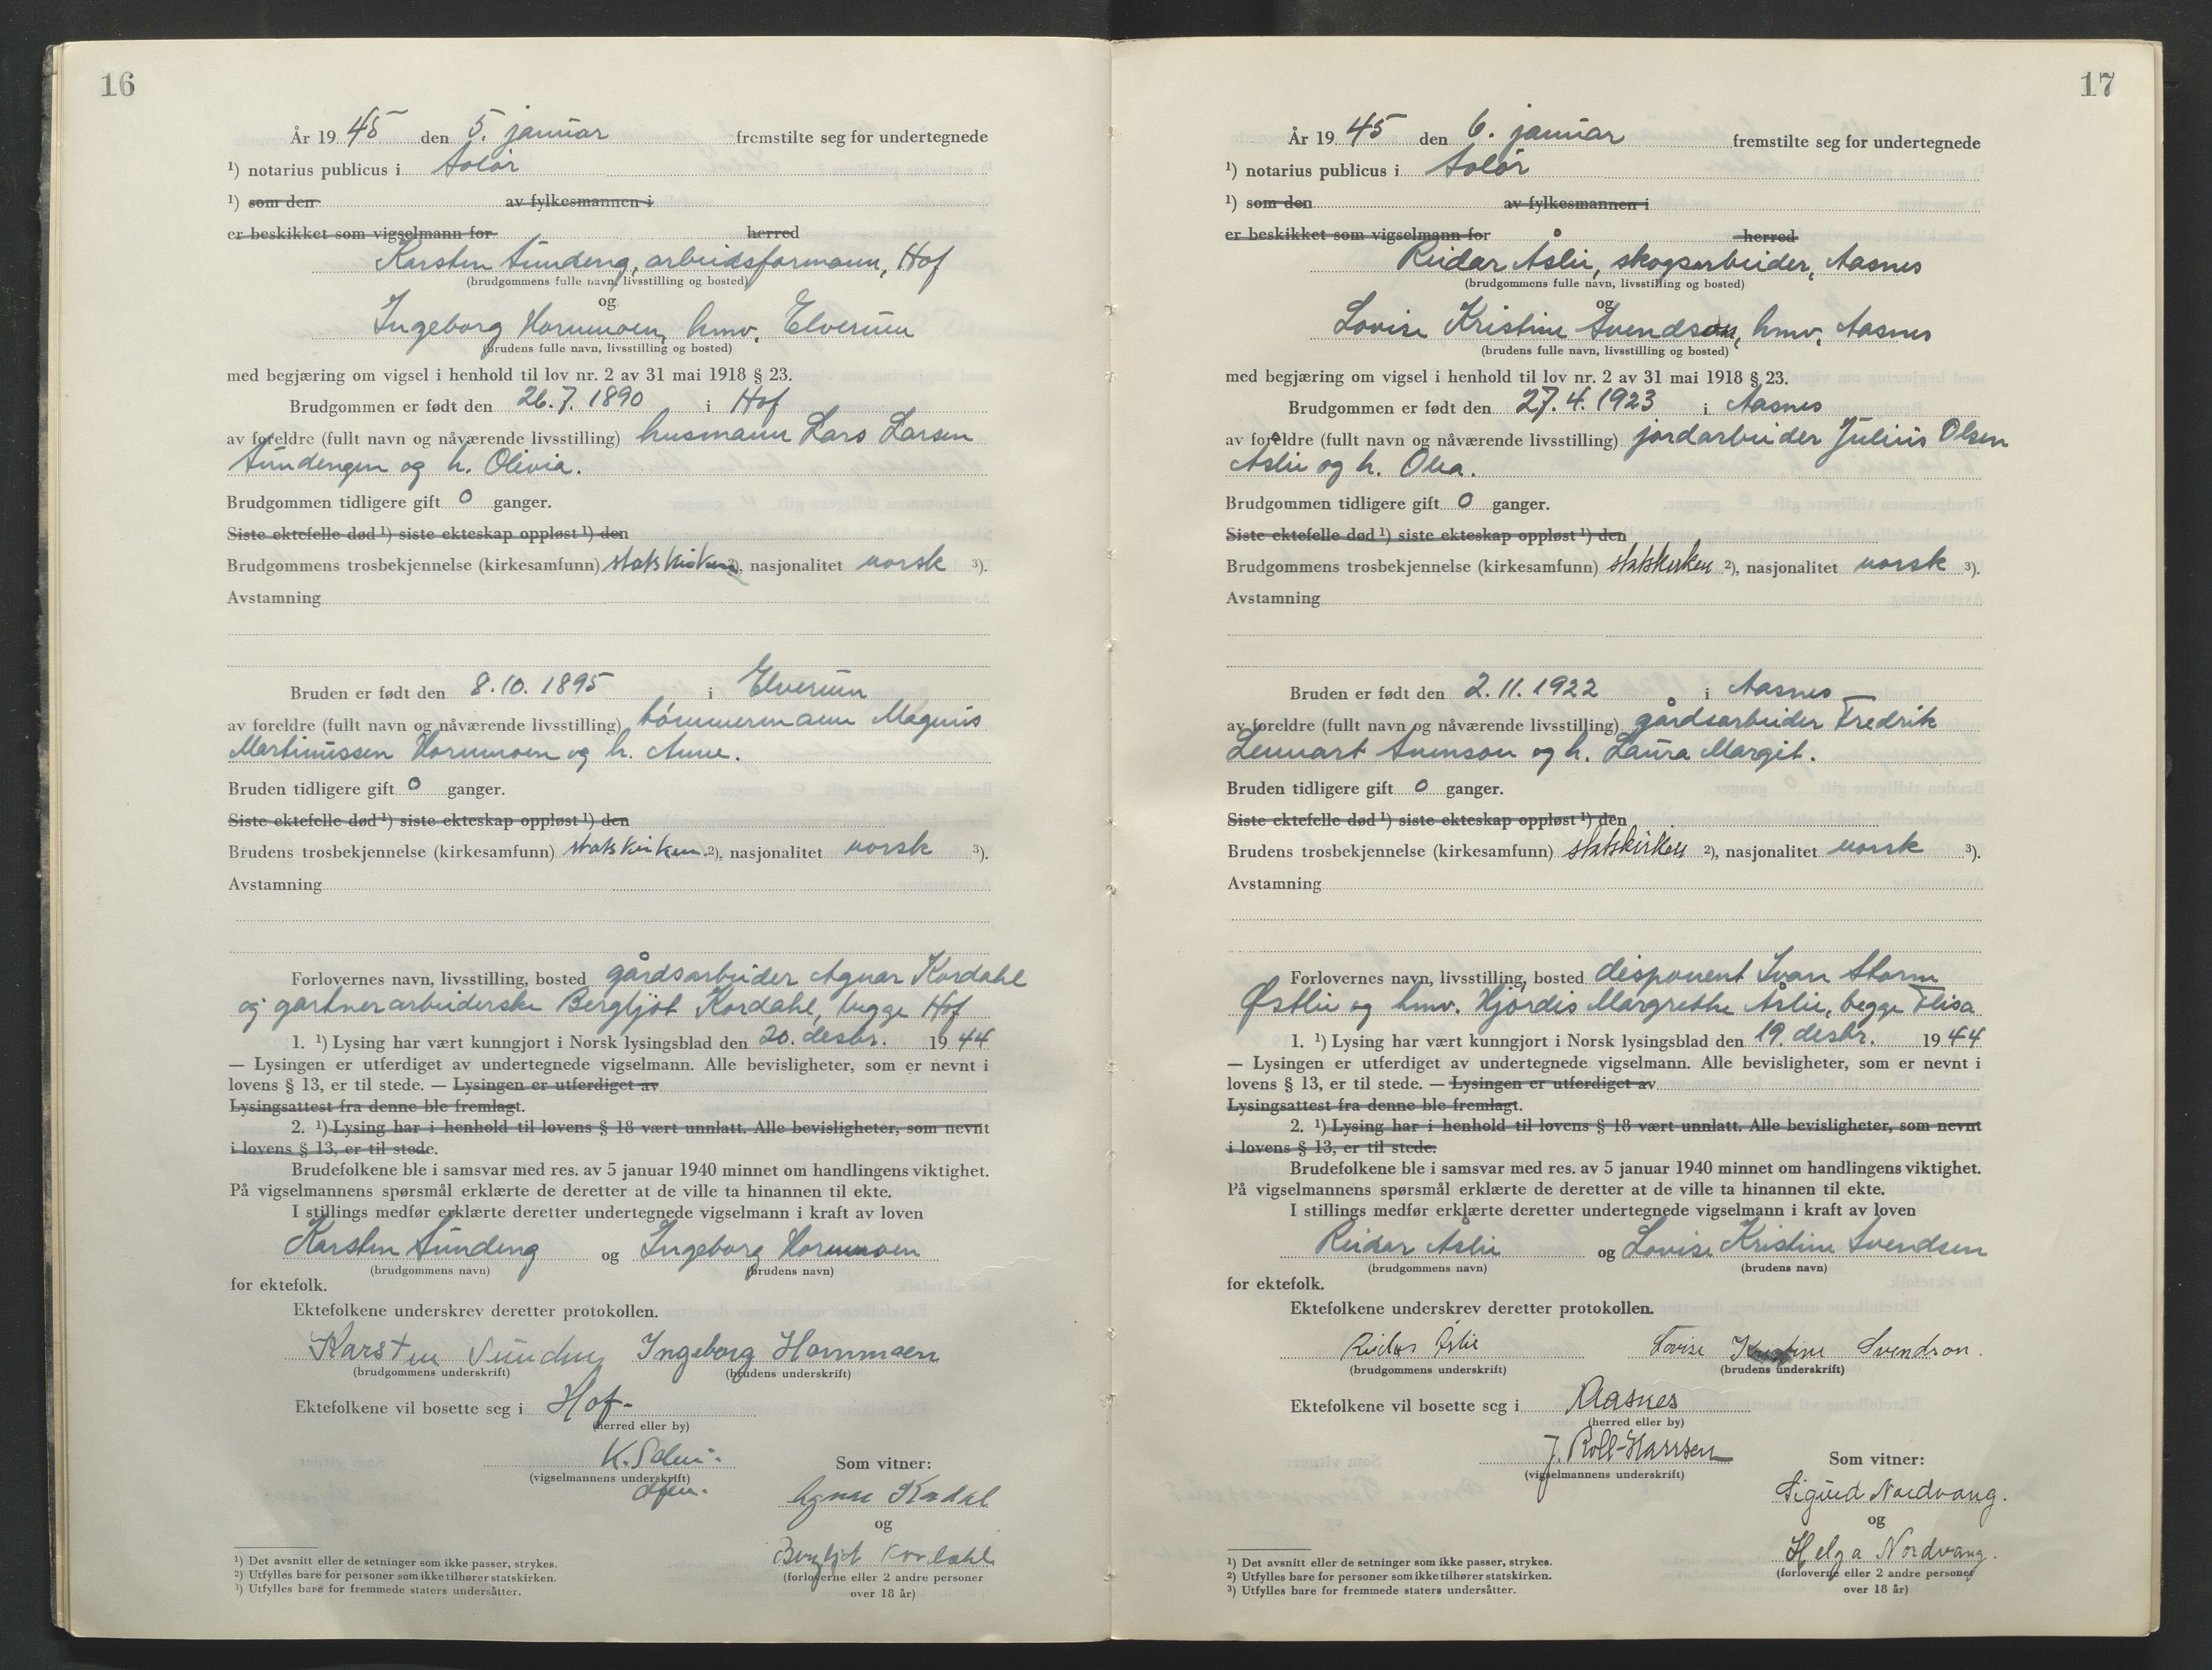 16
År 19 45 den 5. januar fremstilte seg for undertegnede
¹) notarius publicus i Solør
¹) som den av fylkesmannen i
er beskikket som vigselmann for herred
Karsten Sundeng, arbeidsformann, Hof
(brudgommens fulle navn, livsstilling og bosted)
og
Ingeborg Hornmoen, hmv, Elverum
(brudens fulle navn, livsstilling og bosted)
med begjæring om vigsel i henhold til lov nr. 2 av 31 mai 1918 § 23.
Brudgommen er født den 26.7.1890 i Hof
av foreldre (fullt navn og nåværende livsstilling) husmann Lars Larsen
Sundengen og h. Olivia.
Brudgommen tidligere gift 0 ganger.
Siste ektefelle død ¹) siste ekteskap oppløst ¹) den
Brudgommens trosbekjennelse (kirkesamfunn) statskirken ²), nasjonalitet norsk ³).
Avstamning
Bruden er født den 8.10.1895 i Elverum
av foreldre (fullt navn og nåværende livsstilling) tømmermann Magnus
Martinussen Hornmoen og h. Anne.
Bruden tidligere gift 0 ganger.
Siste ektefelle død ¹) siste ekteskap oppløst ¹) den
Brudens trosbekjennelse (kirkesamfunn) statskirken ²), nasjonalitet norsk ³).
Avstamning
Forlovernes navn, livsstilling, bosted gårdsarbeider Agnar Kordahl
og gartnerarbeiderske Bergljot Kordahl, begge Hof
1. ¹) Lysing har vært kunngjort i Norsk lysingsblad den 20. desbr. 19 44
— Lysingen er utferdiget av undertegnede vigselmann. Alle bevisligheter, som er nevnt i
lovens § 13, er til stede. — Lysingen er utferdiget av
Lysingsattest fra denne ble fremlagt.
2. ¹) Lysing har i henhold til lovens § 18 vært unnlatt. Alle bevisligheter, som nevnt
i lovens § 13, er til stede.
Brudefolkene ble i samsvar med res. av 5 januar 1940 minnet om handlingens viktighet.
På vigselmannens spørsmål erklærte de deretter at de ville ta hinannen til ekte.
I stillings medfør erklærte deretter undertegnede vigselmann i kraft av loven
Karsten Sundeng og Ingeborg Hornmoen
(brudgommens navn) (brudens navn)
for ektefolk.
Ektefolkene underskrev deretter protokollen.
Karsten Sundeng Ingeborg Hornmoen
(brudgommens underskrift) (brudens underskrift)
Ektefolkene vil bosette seg i Hof-
(herred eller by)
Som vitner:
(vigselmannens underskrift)
Agnar Kordal
og
Bergljot Kordahl
(forloverne eller 2 andre personer
over 18 år)
¹) Det avsnitt eller de setninger som ikke passer, strykes.
²) Utfylles bare for personer som ikke tilhører statskirken.
³) Utfylles bare for fremmede staters undersåtter.
17
År 19 45 den 6. januar fremstilte seg for undertegnede
¹) notarius publicus i Solør
¹) som den av fylkesmannen i
er beskikket som vigselmann for herred
Reidar Åslie, skogsarbeider, Aasnes
(brudgommens fulle navn, livsstilling og bosted)
og
Lovise Kristine Svendsen, hmv, Aasnes
(brudens fulle navn, livsstilling og bosted)
med begjæring om vigsel i henhold til lov nr. 2 av 31 mai 1918 § 23.
Brudgommen er født den 27.4.1923 i Aasnes
av foreldre (fullt navn og nåværende livsstilling) jordarbeider Julius Olsen
Åslie og h. Olea.
Brudgommen tidligere gift 0 ganger.
Siste ektefelle død ¹) siste ekteskap oppløst ¹) den
Brudgommens trosbekjennelse (kirkesamfunn) statskirken ²), nasjonalitet norsk ³).
Avstamning
Bruden er født den 2.11.1922 i Aasnes
av foreldre (fullt navn og nåværende livsstilling) gårdsarbeider Fredrik
Lennart Svenson og h. Laura Margit.
Bruden tidligere gift 0 ganger.
Siste ektefelle død ¹) siste ekteskap oppløst ¹) den
Brudens trosbekjennelse (kirkesamfunn) statskirken ²), nasjonalitet norsk ³).
Avstamning
Forlovernes navn, livsstilling, bosted disponent Ivan Storm
Østlie og hmv. Hjørdis Margrethe Åslie, begge Flisa
1. ¹) Lysing har vært kunngjort i Norsk lysingsblad den 19. desbr. 19 44
— Lysingen er utferdiget av undertegnede vigselmann. Alle bevisligheter, som er nevnt i
lovens § 13, er til stede. — Lysingen er utferdiget av
Lysingsattest fra denne ble fremlagt.
2. ¹) Lysing har i henhold til lovens § 18 vært unnlatt. Alle bevisligheter, som nevnt
i lovens § 13, er til stede.
Brudefolkene ble i samsvar med res. av 5 januar 1940 minnet om handlingens viktighet.
På vigselmannens spørsmål erklærte de deretter at de ville ta hinannen til ekte.
I stillings medfør erklærte deretter undertegnede vigselmann i kraft av loven
Reidar Åslie og Lovise Kristine Svendsen
(brudgommens navn) (brudens navn)
for ektefolk.
Ektefolkene underskrev deretter protokollen.
Reidar Åslie Lovise Kristine Svendson.
(brudgommens underskrift) (brudens underskrift)
Ektefolkene vil bosette seg i Aasnes
(herred eller by)
J. Roll-Hanssen Som vitner:
(vigselmannens underskrift)
Sigurd Nordvang.
og
Helga Nordvang.
(forloverne eller 2 andre personer
over 18 år)
¹) Det avsnitt eller de setninger som ikke passer, strykes.
²) Utfylles bare for personer som ikke tilhører statskirken.
³) Utfylles bare for fremmede staters undersåtter.